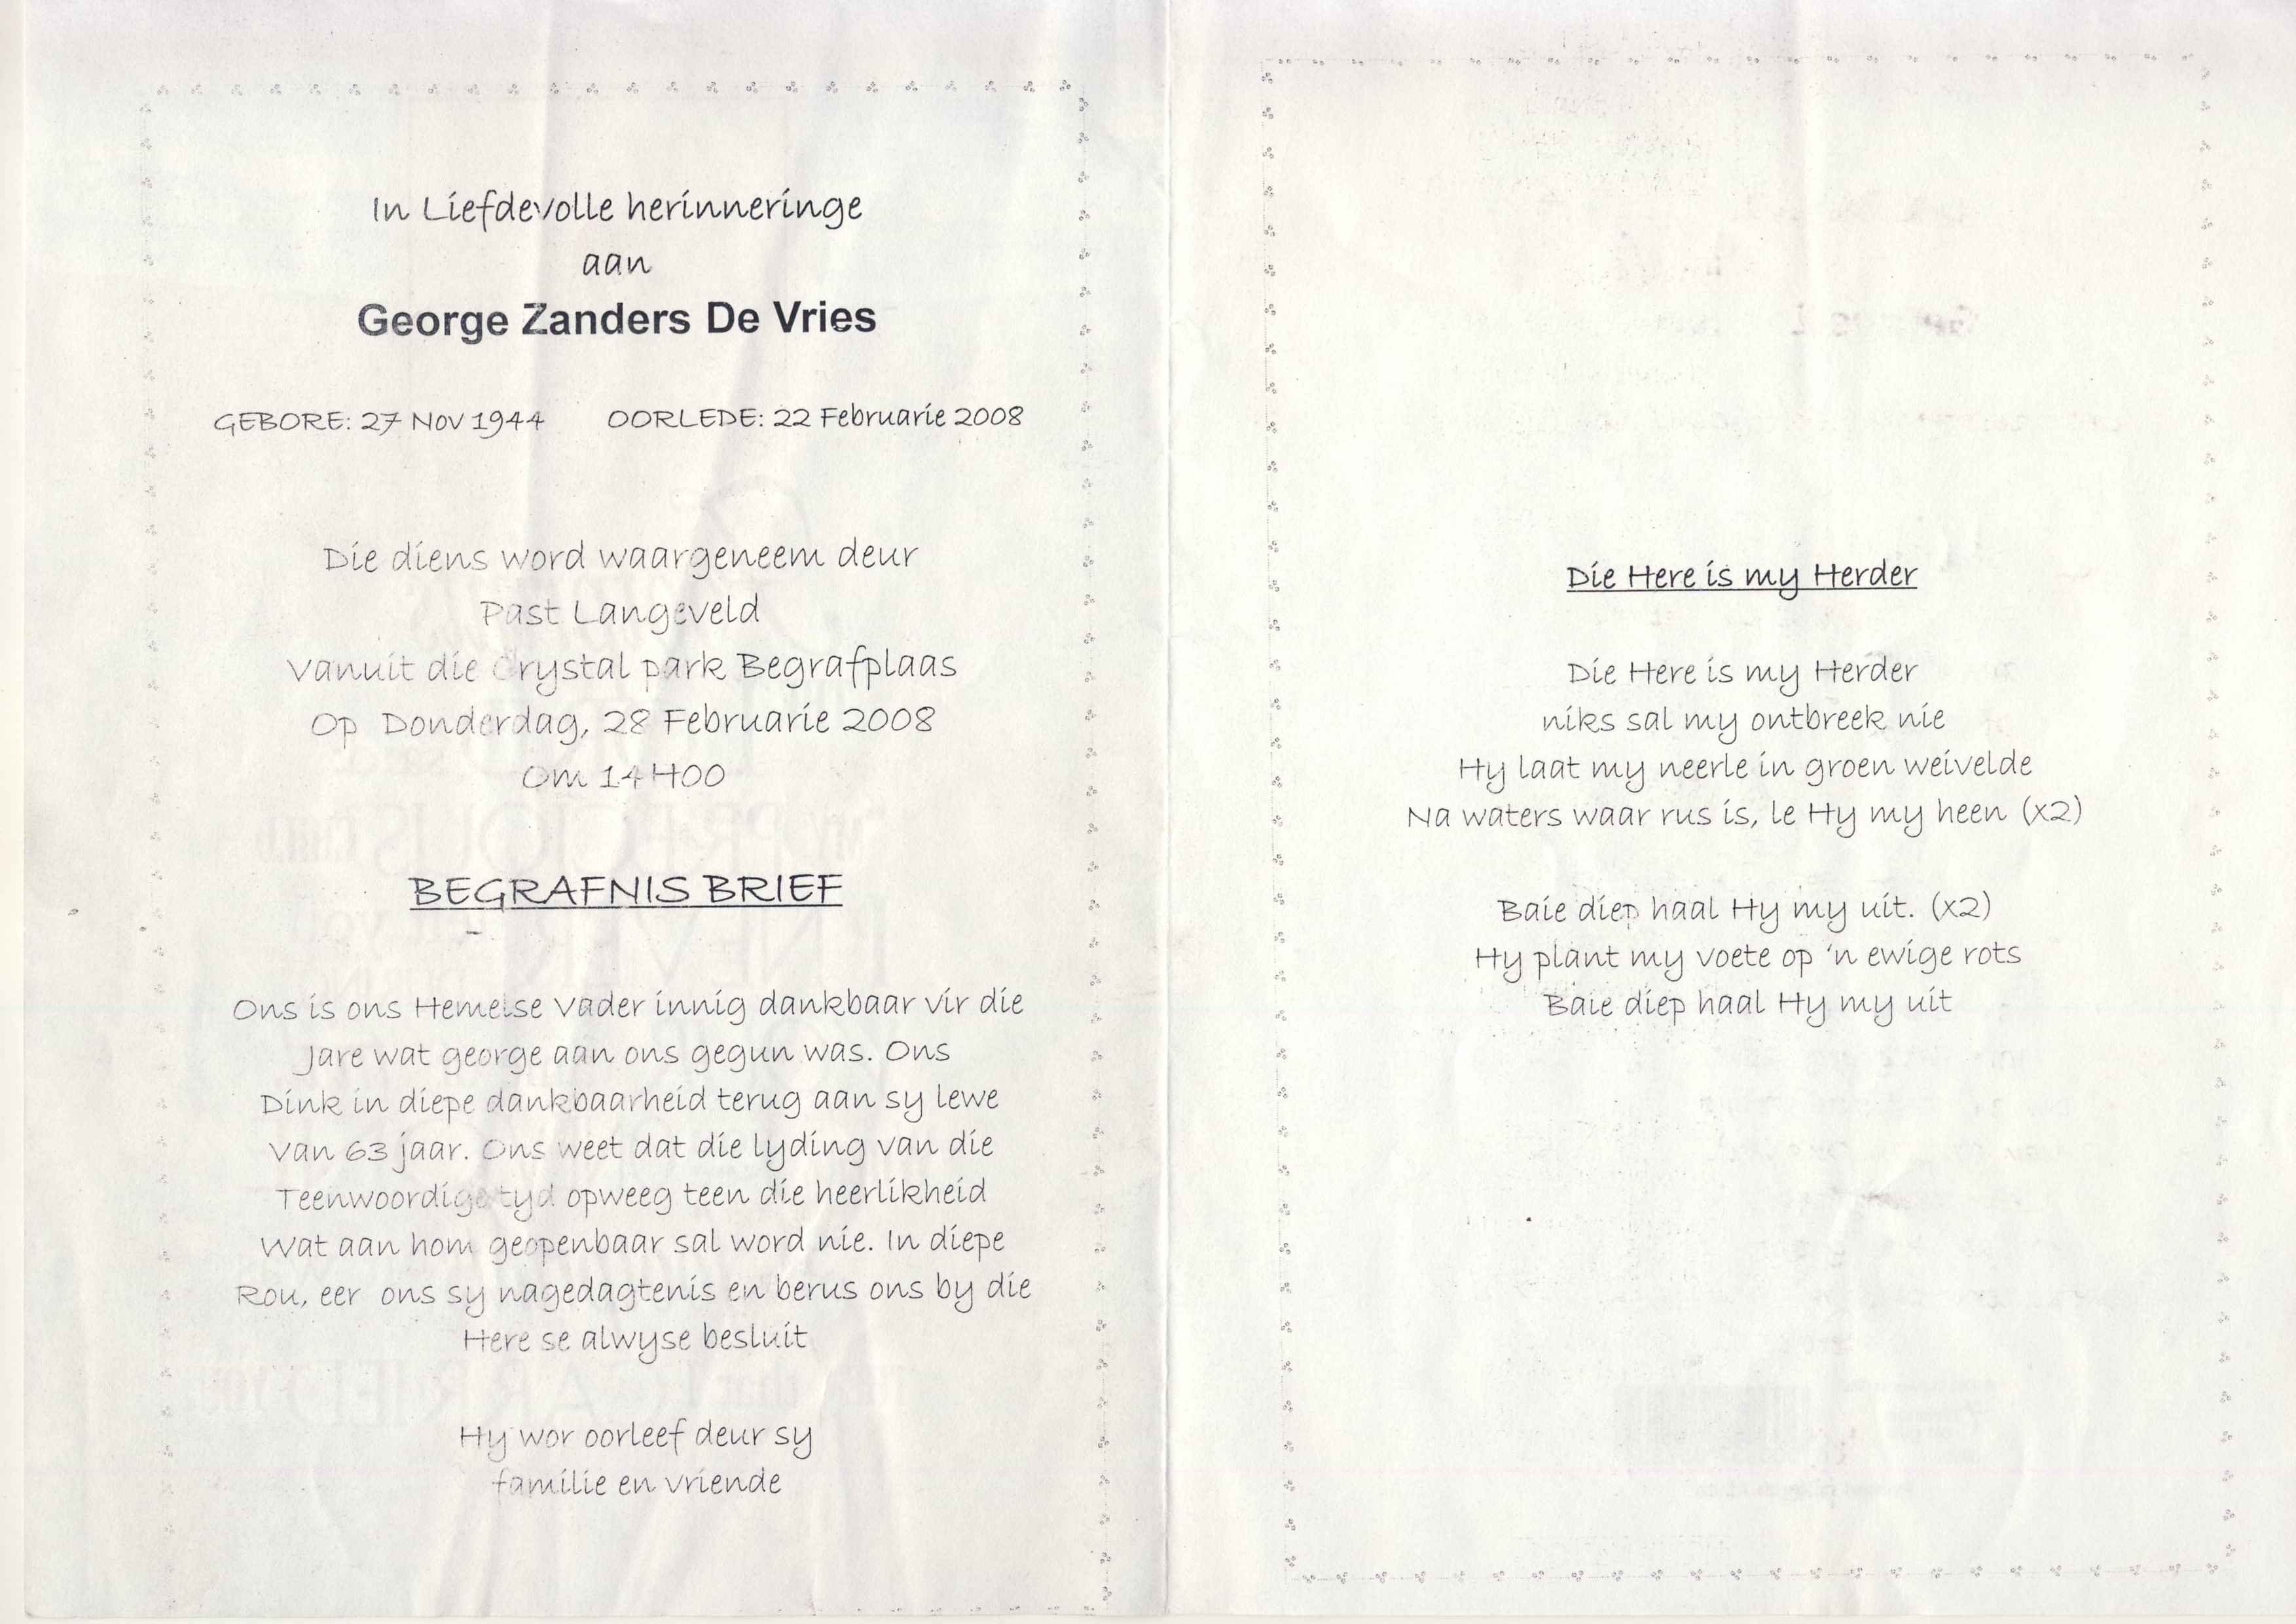 In Liefdevolle herinneringe
aan
George Zanders De Vries
GEBORE: 27 Nov 1944 OORLEDE: 22 Februarie 2008
Die diens word waargeneem deur
Past Langeveld
Vanuit die Crystal park Begrafplaas
Op Donderdag, 28 Februarie 2008
Om 14H00
BEGRAFNIS BRIEF
Ons is ons Hemelse Vader innig dankbaar vir die
Jare wat george aan ons gegun was. Ons
Dink in diepe dankbaarheid terug aan sy lewe
Van 63 jaar. Ons weet dat die lyding van die
Teenwoordige tyd opweeg teen die heerlikheid
Wat aan hom geopenbaar sal word nie. In diepe
Rou, eer ons sy nagedagtenis en berus ons by die
Here se alwyse besluit
Hy wor oorleef deur sy
familie en vriende
Die Here is my Herder
Die Here is my Herder
niks sal my ontbreek nie
Hy laat my neerle in groen weivelde
Na waters waar rus is, le Hy my heen (x2)
Baie diep haal Hy my uit. (x2)
Hy plant my voete op 'n ewige rots
Baie diep haal Hy my uit